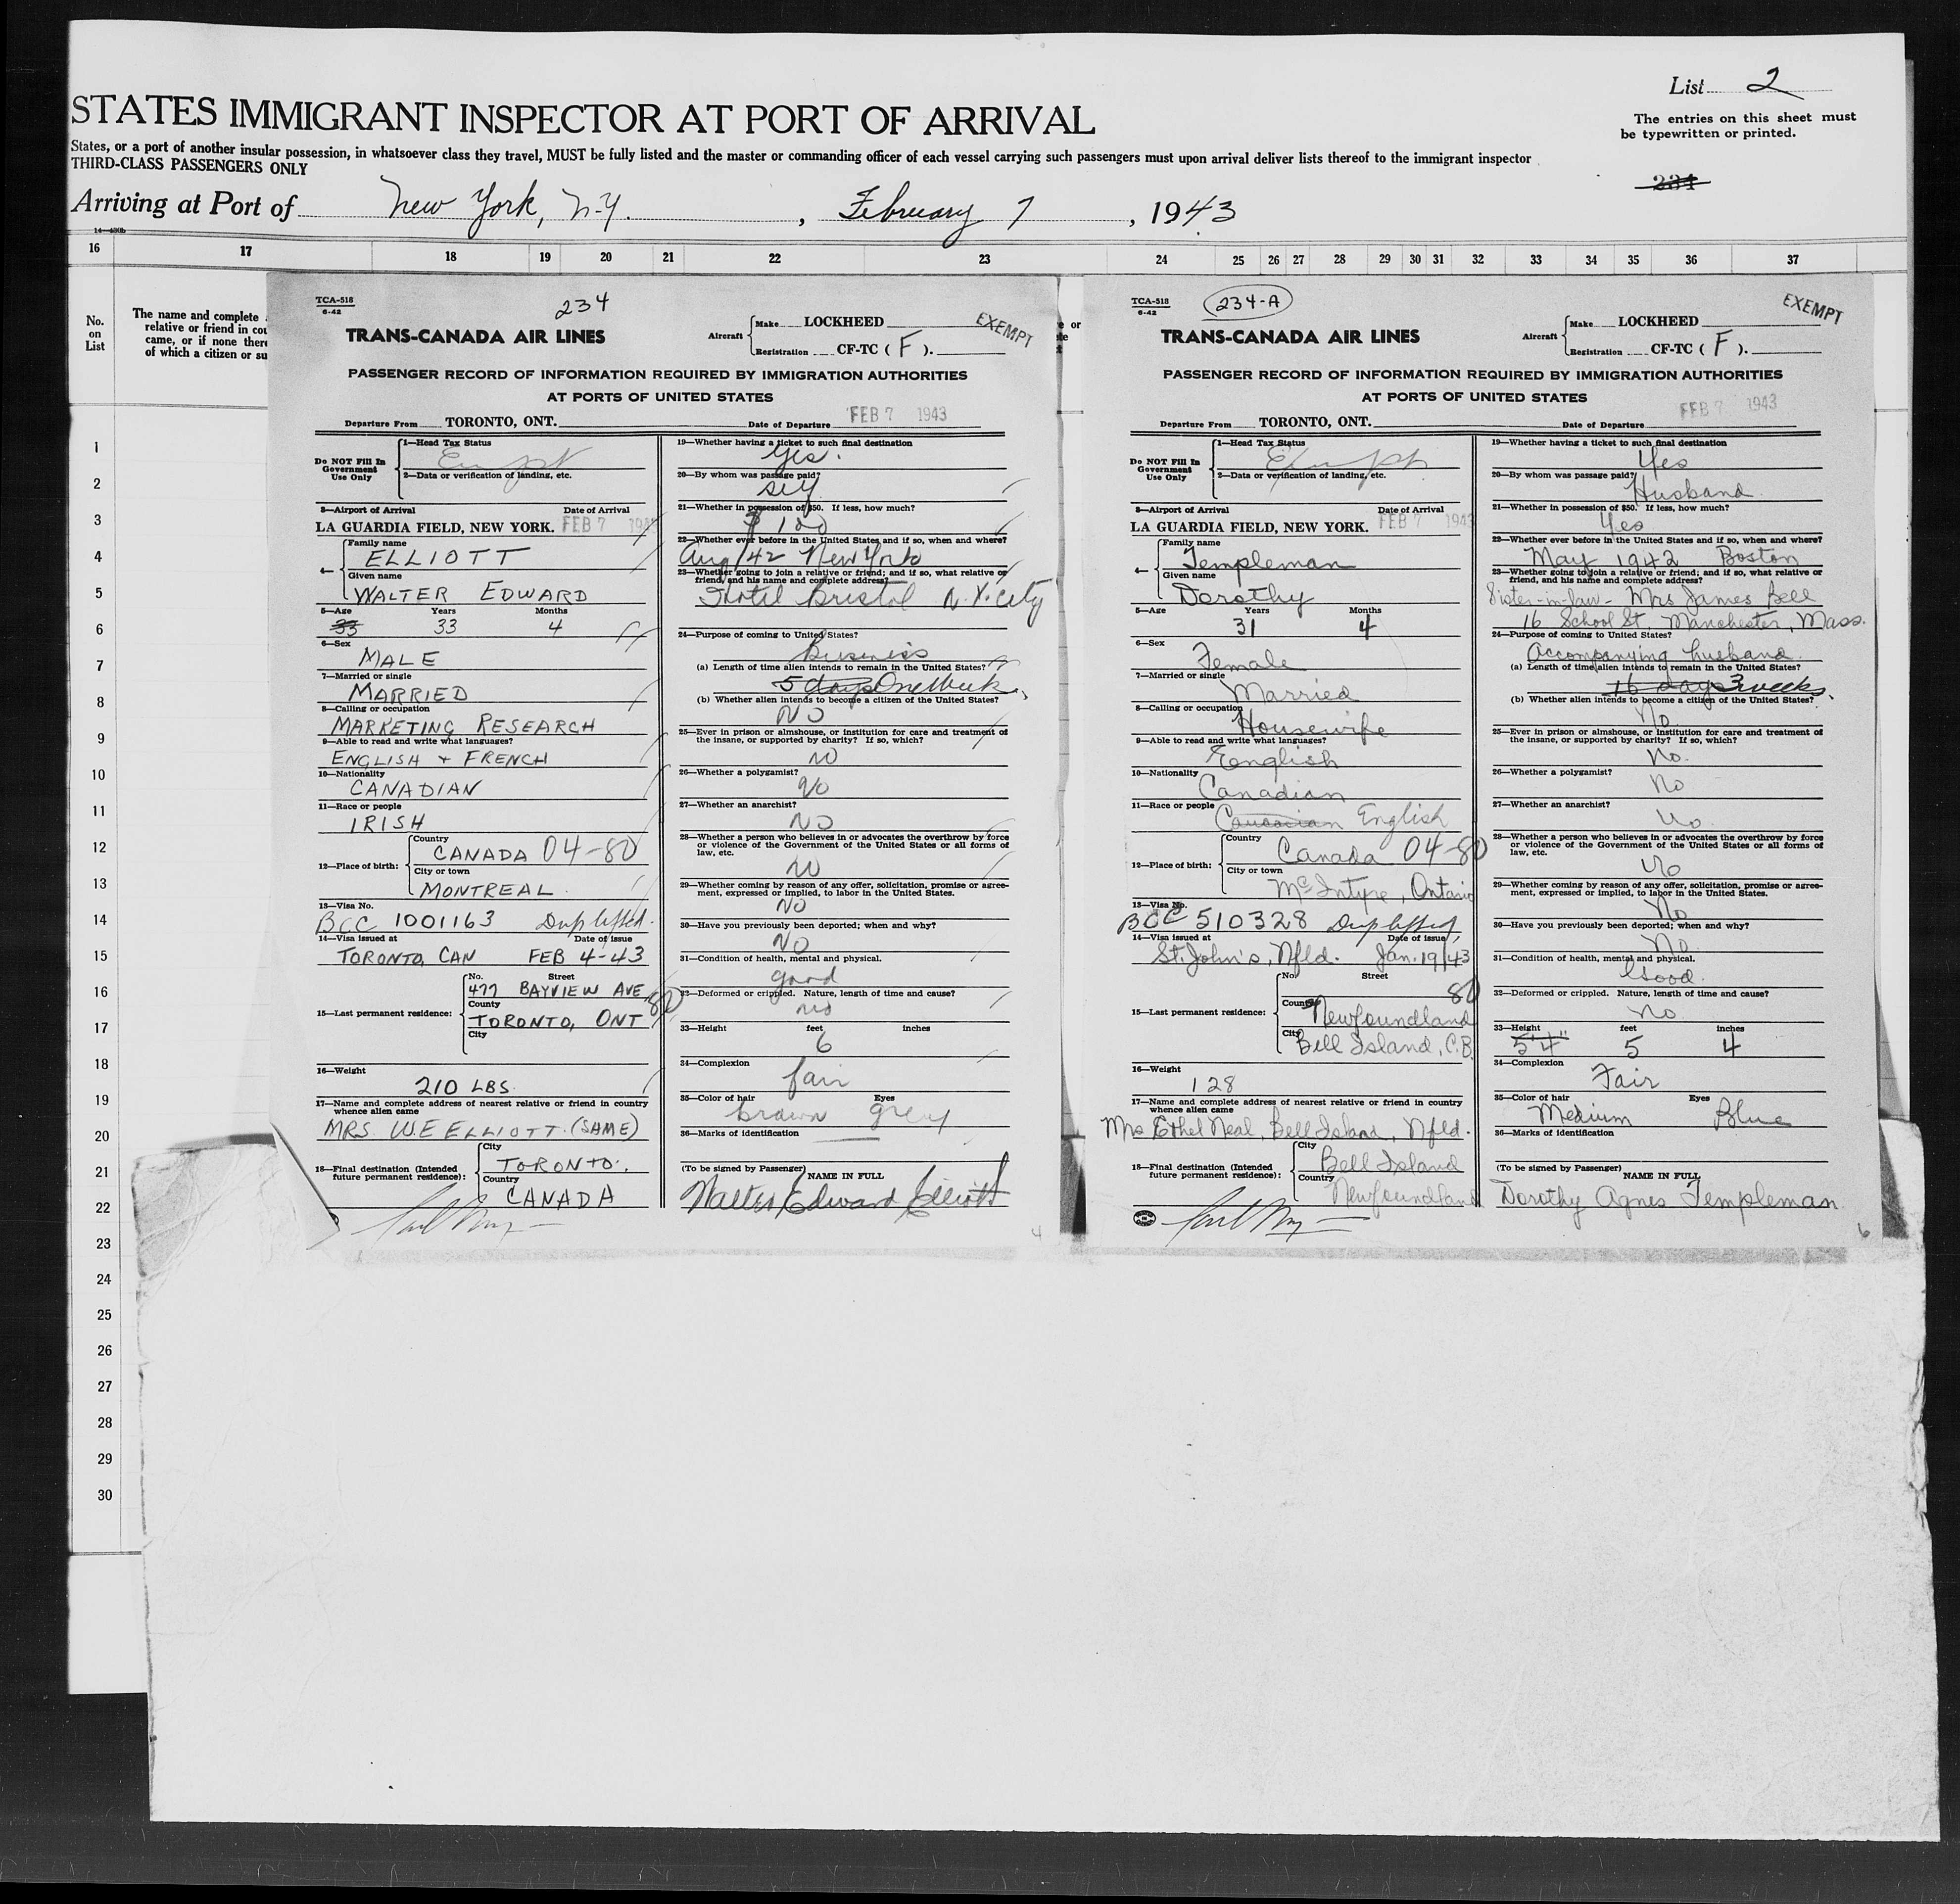 List 2
STATES IMMIGRANT INSPECTOR AT PORT OF ARRIVAL
The entries on this sheet must
be typewritten or printed.
States, or a port of another insular possession, in whatsoever class they travel, MUST be fully listed and the master or commanding officer of each vessel carrying such passengers must upon arrival deliver lists thereof to the immigrant inspector
THIRD-CLASS PASSENGERS ONLY
234
Arriving at Port of New York, N.Y. , February 7 , 1943
14—480b
16 17 18 19 20 21 22 23 24 25 26 27 28 29 30 31 32 33 34 35 36 37
No.
on
List
The name and complete
relative or friend in cou
came, or if none there
of which a citizen or su
1
2
3
4
5
6
7
8
9
10
11
12
13
14
15
16
17
18
19
20
21
22
23
24
25
26
27
28
29
30
TCA-518
6-42
234
TRANS-CANADA AIR LINES
Aircraft Make LOCKHEED
Registration CF-TC ( F ).
EXEMPT
PASSENGER RECORD OF INFORMATION REQUIRED BY IMMIGRATION AUTHORITIES
AT PORTS OF UNITED STATES
Departure From TORONTO, ONT. Date of Departure FEB 7 1943
Do NOT Fill In
Government
Use Only
1—Head Tax Status
Exempt
2—Data or verification of landing, etc.
3—Airport of Arrival Date of Arrival
LA GUARDIA FIELD, NEW YORK. FEB 7 194
4— Family name
ELLIOTT
Given name
WALTER EDWARD
5—Age Years Months
33 33 4
6—Sex
MALE
7—Married or single
MARRIED
8—Calling or occupation
MARKETING RESEARCH
9—Able to read and write what languages?
ENGLISH + FRENCH
10—Nationality
CANADIAN
11—Race or people
IRISH
12—Place of birth: Country
CANADA 04-80
City or town
MONTREAL
13—Visa No.
BCC 1001163 Dup lifted
14—Visa issued at Date of issue
TORONTO, CAN FEB 4-43
15—Last permanent residence: No. Street
477 BAYVIEW AVE 80
County
TORONTO, ONT
City
16—Weight
210 LBS.
17—Name and complete address of nearest relative or friend in country
whence alien came
MRS. W.E ELLIOTT. (SAME)
18—Final destination (Intended
future permanent residence): City
TORONTO.
Country
CANADA
19—Whether having a ticket to such final destination
Yes.
20—By whom was passage paid?
self
21—Whether in possession of $50. If less, how much?
$ 100
22—Whether ever before in the United States and if so, when and where?
Aug/42 New York
23—Whether going to join a relative or friend; and if so, what relative or
friend, and his name and complete address?
Hotel Bristol N.Y. City
24—Purpose of coming to United States?
Business
(a) Length of time alien intends to remain in the United States?
5 days One Week
(b) Whether alien intends to become a citizen of the United States?
NO
25—Ever in prison or almshouse, or institution for care and treatment of
the insane, or supported by charity? If so, which?
NO
26—Whether a polygamist?
NO
27—Whether an anarchist?
NO
28—Whether a person who believes in or advocates the overthrow by force
or violence of the Government of the United States or all forms of
law, etc.
NO
29—Whether coming by reason of any offer, solicitation, promise or agree-
ment, expressed or implied, to labor in the United States.
NO
30—Have you previously been deported; when and why?
NO
31—Condition of health, mental and physical.
good
32—Deformed or crippled. Nature, length of time and cause?
no
33—Height feet inches
6
34—Complexion
fair
35—Color of hair Eyes
brown grey
36—Marks of identification
(To be signed by Passenger) NAME IN FULL
Walter Edward Elliott
4
TCA-518
6-42
234-A
TRANS-CANADA AIR LINES
Aircraft Make LOCKHEED
Registration CF-TC ( F ).
EXEMPT
PASSENGER RECORD OF INFORMATION REQUIRED BY IMMIGRATION AUTHORITIES
AT PORTS OF UNITED STATES
Departure From TORONTO, ONT. Date of Departure FEB 7 1943
Do NOT Fill In
Government
Use Only
1—Head Tax Status
Exempt
2—Data or verification of landing, etc.
3—Airport of Arrival Date of Arrival
LA GUARDIA FIELD, NEW YORK. FEB 7 1943
4— Family name
Templeman
Given name
Dorothy
5—Age Years Months
31 4
6—Sex
Female
7—Married or single
Married
8—Calling or occupation
Housewife
9—Able to read and write what languages?
English
10—Nationality
Canadian
11—Race or people
Caucasian English
12—Place of birth: Country
Canada 04-80
City or town
McIntyre, Ontario
13—Visa No.
BCC 510328 Dup lifted
14—Visa issued at Date of issue
St. John's, Nfld. Jan. 19/43
15—Last permanent residence: No. Street
80
County
Newfoundland
City
Bell Island, C.B.
16—Weight
128
17—Name and complete address of nearest relative or friend in country
whence alien came
Mrs Ethel Neal, Bell Island, Nfld.
18—Final destination (Intended
future permanent residence): City
Bell Island
Country
Newfoundland
19—Whether having a ticket to such final destination
Yes
20—By whom was passage paid?
Husband
21—Whether in possession of $50. If less, how much?
Yes
22—Whether ever before in the United States and if so, when and where?
May 1942 Boston
23—Whether going to join a relative or friend; and if so, what relative or
friend, and his name and complete address?
Sister-in-law - Mrs James Bell
16 School St, Manchester, Mass.
24—Purpose of coming to United States?
Accompanying husband.
(a) Length of time alien intends to remain in the United States?
16 days 3 weeks
(b) Whether alien intends to become a citizen of the United States?
No
25—Ever in prison or almshouse, or institution for care and treatment of
the insane, or supported by charity? If so, which?
No.
26—Whether a polygamist?
No
27—Whether an anarchist?
No
28—Whether a person who believes in or advocates the overthrow by force
or violence of the Government of the United States or all forms of
law, etc.
No
29—Whether coming by reason of any offer, solicitation, promise or agree-
ment, expressed or implied, to labor in the United States.
No
30—Have you previously been deported; when and why?
No
31—Condition of health, mental and physical.
Good.
32—Deformed or crippled. Nature, length of time and cause?
No
33—Height feet inches
5'4" 5 4
34—Complexion
Fair
35—Color of hair Eyes
Medium Blue
36—Marks of identification
(To be signed by Passenger) NAME IN FULL
Dorothy Agnes Templeman
6